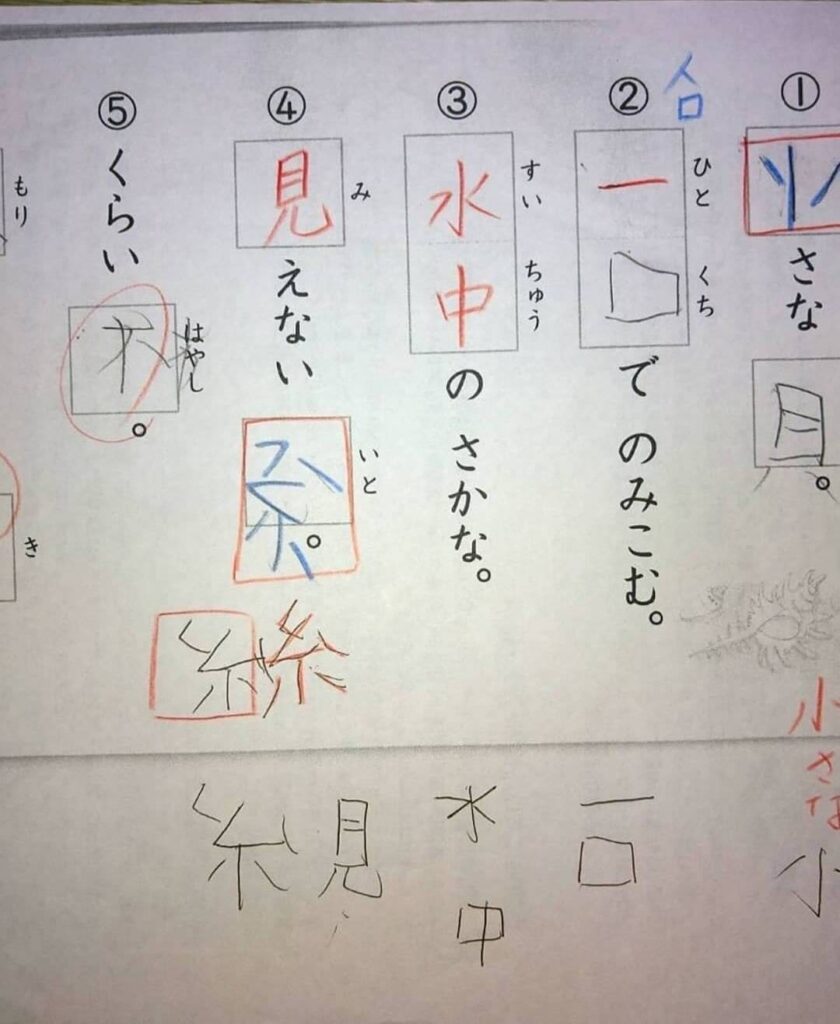 ①
小さな貝。
②
合
一口でのみこむ。
ひと
くち
③
水中のさかな。
すい
ちゅう
④
見えない糸。
み
いと
⑤
くらい木。
はやし
もり
き
糸
糸
小さな
小
一口
水中
見
糸